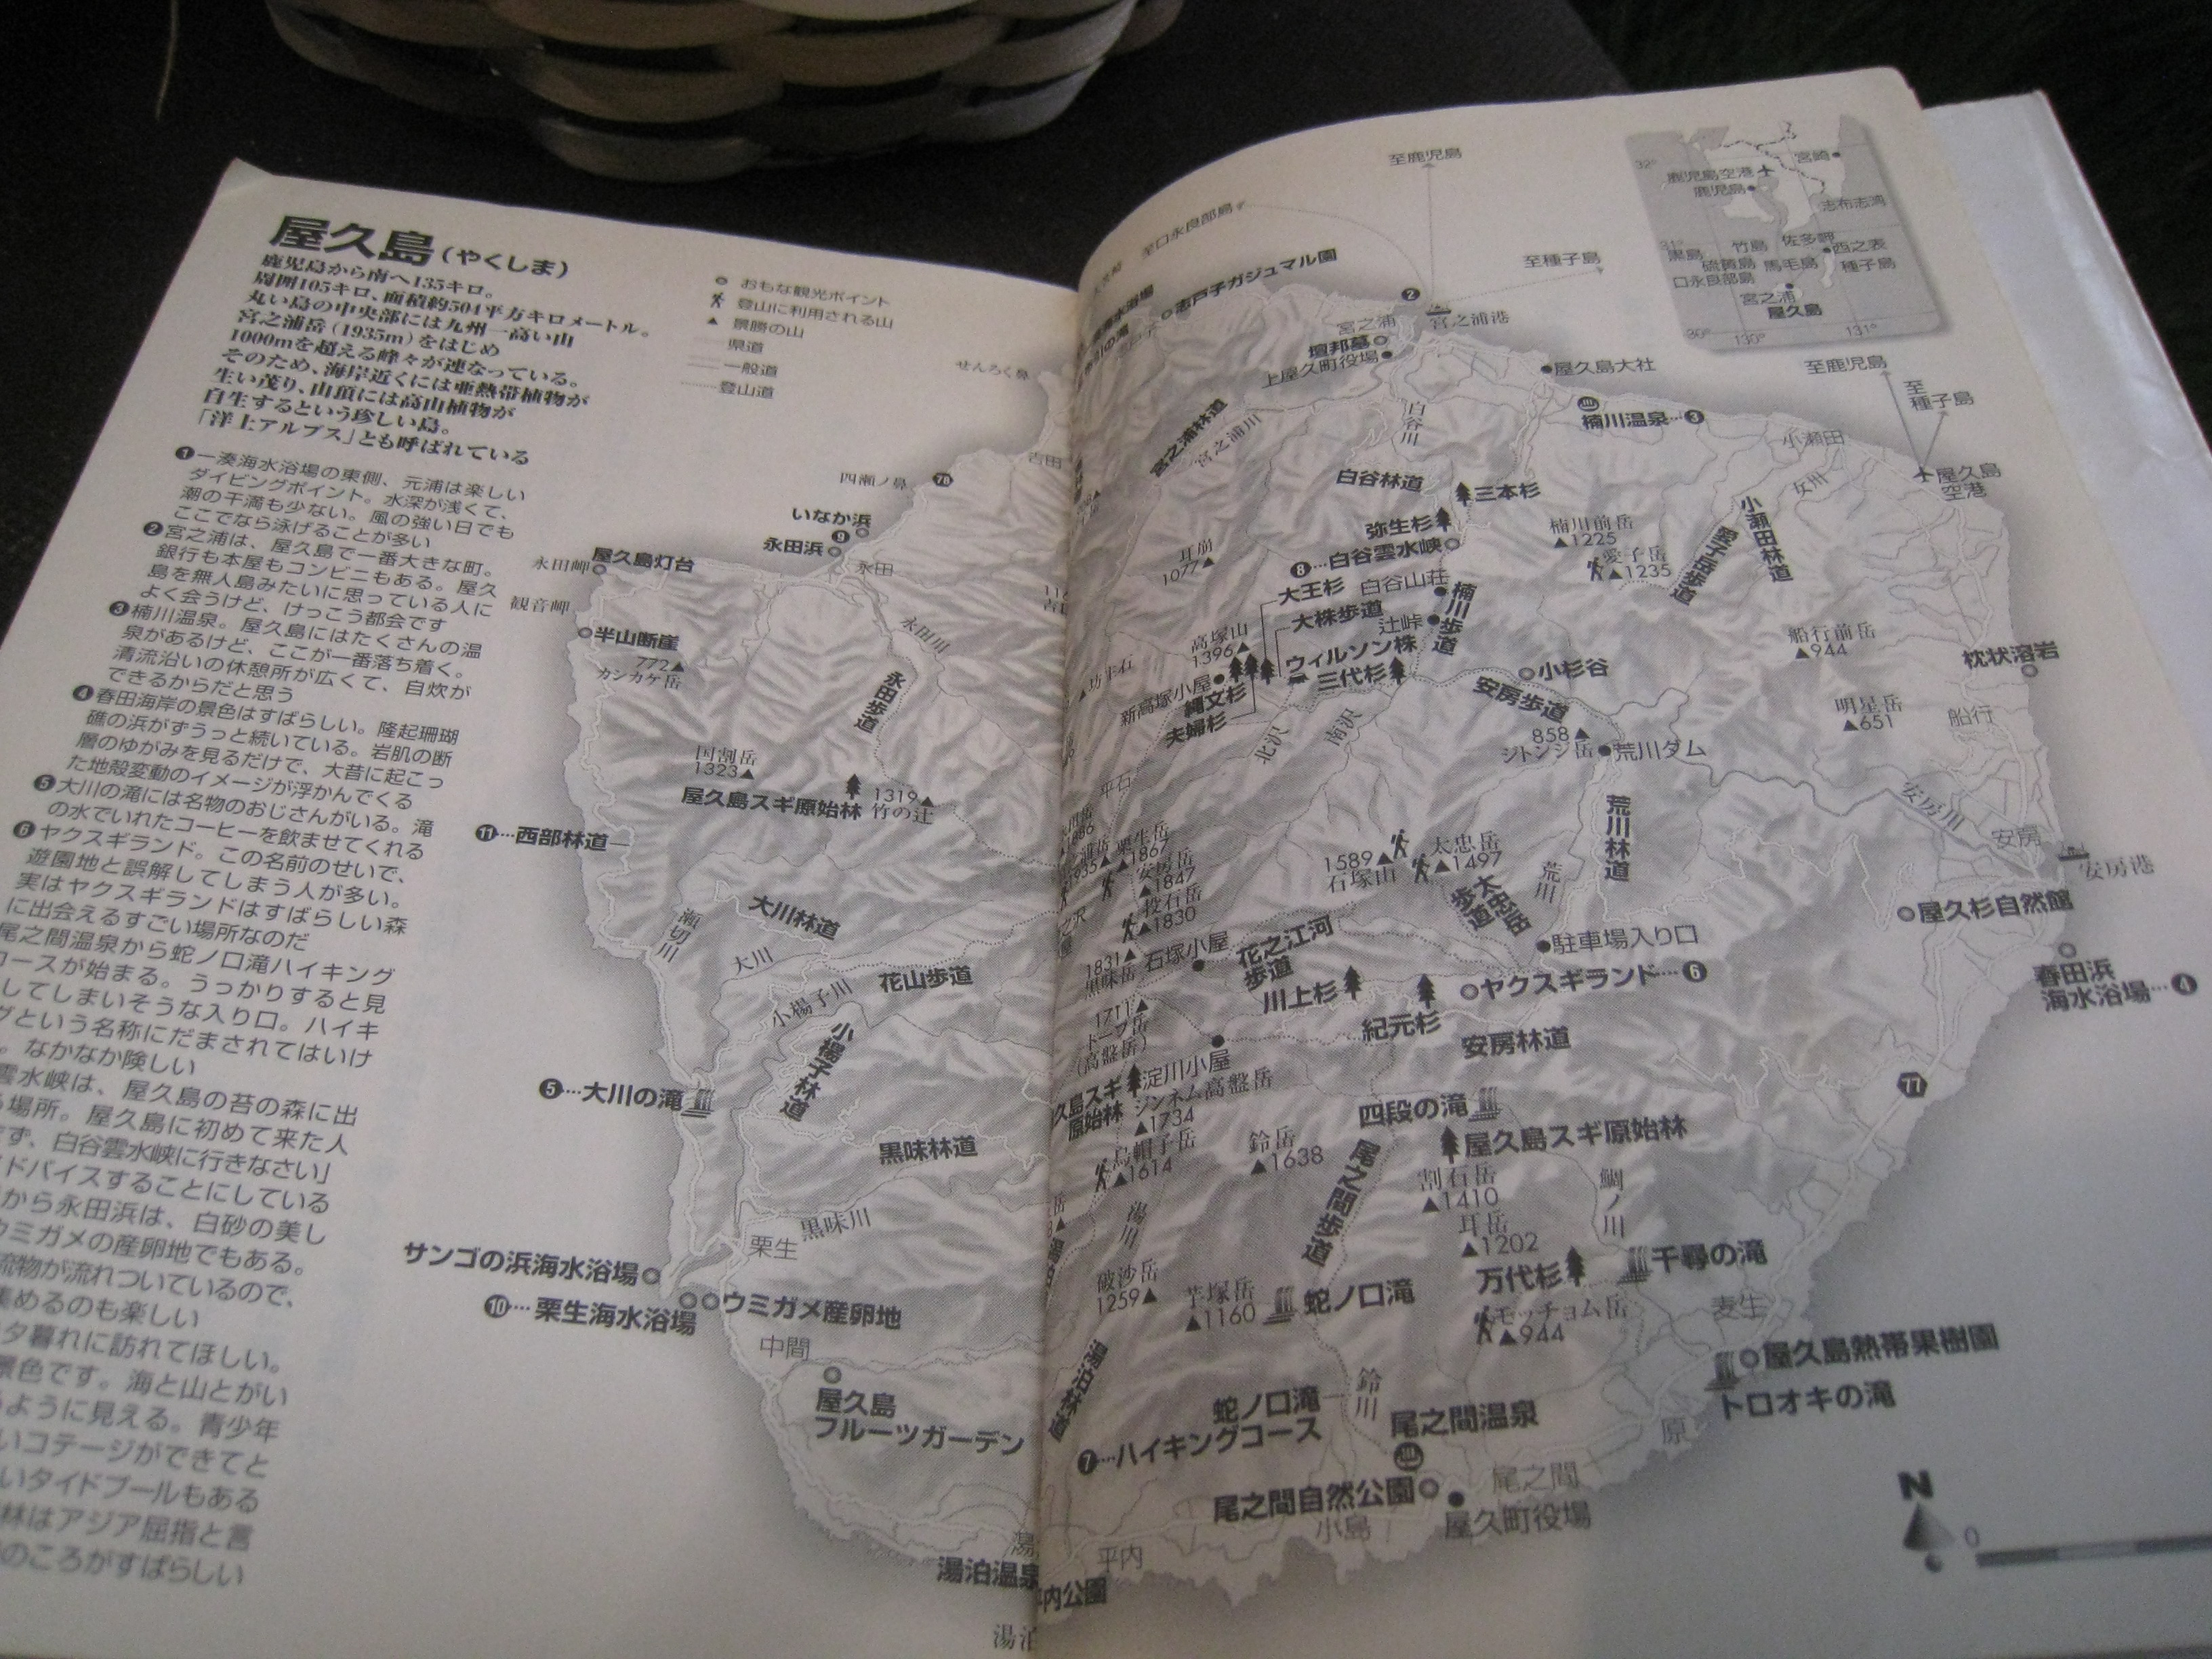 屋久島（やくしま）
鹿児島から南へ135キロ。
周囲105キロ、面積約504平方キロメートル。
丸い島の中央部には九州一高い山
宮之浦岳（1935m）をはじめ
1000mを超える峰々が連なっている。
そのため、海岸近くには亜熱帯植物が
生い茂り、山頂には高山植物が
自生するという珍しい島。
「洋上アルプス」とも呼ばれている
❶一湊海水浴場の東側、元浦は楽しい
ダイビングポイント。水深が浅くて、
潮の干満も少ない。風の強い日でも
ここでなら泳げることが多い
❷宮之浦は、屋久島で一番大きな町。
銀行も本屋もコンビニもある。屋久
島を無人島みたいに思っている人に
よく会うけど、けっこう都会です
❸楠川温泉。屋久島にはたくさんの温
泉があるけど、ここが一番落ち着く。
清流沿いの休憩所が広くて、自炊が
できるからだと思う
❹春田海岸の景色はすばらしい。隆起珊瑚
礁の浜がずうっと続いている。岩肌の断
層のゆがみを見るだけで、大昔に起こっ
た地殻変動のイメージが浮かんでくる
❺大川の滝には名物のおじさんがいる。滝
の水でいれたコーヒーを飲ませてくれる
❻ヤクスギランド。この名前のせいで、
遊園地と誤解してしまう人が多い。
実はヤクスギランドはすばらしい森
に出会えるすごい場所なのだ
尾之間温泉から蛇ノ口滝ハイキング
コースが始まる。うっかりすると見
してしまいそうな入り口。ハイキ
グという名称にだまされてはいけ
。なかなか険しい
雲水峡は、屋久島の苔の森に出
る場所。屋久島に初めて来た人
ず、白谷雲水峡に行きなさい」
ドバイスすることにしている
から永田浜は、白砂の美し
ウミガメの産卵地でもある。
流物が流れついているので、
集めるのも楽しい
夕暮れに訪れてほしい。
景色です。海と山とがい
ように見える。青少年
いコテージができてと
いタイドプールもある
林はアジア屈指と言
のころがすばらしい
おもな観光ポイント
登山に利用される山
▲ 景勝の山
県道
一般道
登山道
せんろく鼻
吉田
四瀬ノ鼻
78
いなか浜
❾
永田浜
永田
永田岬
屋久島灯台
観音岬
半山断崖
772▲
カンカケ岳
永田川
永田歩道
国割岳
1323▲
屋久島スギ原始林
1319▲
竹の辻
⓫…西部林道
瀬切川
大川林道
大川
花山歩道
小楊子川
小楊子林道
❺…大川の滝
黒味林道
黒味川
栗生
サンゴの浜海水浴場
❿…栗生海水浴場
ウミガメ産卵地
中間
屋久島
フルーツガーデン
湯泊温泉
至鹿児島
至口永良部島
至種子島
志戸子ガジュマル園
❷
宮之浦
宮之浦港
上屋久町役場
屋久島大社
楠川温泉…❸
宮之浦林道
宮之浦川
白谷川
白谷林道
三本杉
弥生杉
❽…白谷雲水峡
大王杉
白谷山荘
大株歩道
辻峠
楠川歩道
ウィルソン株
三代杉
耳崩
1077▲
高塚山
1396▲
新高塚小屋
縄文杉
夫婦杉
坊主石
北沢
南沢
平石
楠川前岳
▲1225
愛子岳
▲1235
愛子岳歩道
小瀬田林道
小瀬田
女川
至鹿児島
至
種子島
屋久島
空港
船行前岳
▲944
枕状溶岩
明星岳
▲651
船行
小杉谷
安房歩道
858▲
ジトンジ岳
荒川ダム
荒川林道
荒川
安房川
安房
安房港
屋久杉自然館
春田浜
海水浴場…❹
栗生岳
▲1867
安房岳
▲1847
投石岳
▲1830
1831▲
黒味岳
石塚小屋
花之江河
歩道
1589▲
石塚山
太忠岳
▲1497
太忠岳
歩道
駐車場入り口
ヤクスギランド…❻
川上杉
紀元杉
安房林道
1711▲
トーフ岳
（高盤岳）
淀川小屋
ジンネム高盤岳
▲1734
久島スギ
原始林
烏帽子岳
▲1614
鈴岳
▲1638
湯川
破沙岳
1259▲
芋塚岳
▲1160
四段の滝
屋久島スギ原始林
尾之間歩道
割石岳
▲1410
耳岳
▲1202
鯛ノ川
77
万代杉
千尋の滝
モッチョム岳
▲944
蛇ノ口滝
麦生
屋久島熱帯果樹園
トロオキの滝
湯泊林道
蛇ノ口滝
❼…ハイキングコース
鈴川
尾之間温泉
尾之間自然公園
尾之間
屋久町役場
小島
原
平内
平内公園
湯泊
N
0
32°
31°
30°
130°
131°
宮崎
鹿児島空港
鹿児島
志布志湾
佐多岬
竹島
黒島
硫黄島
馬毛島
西之表
種子島
口永良部島
宮之浦
屋久島